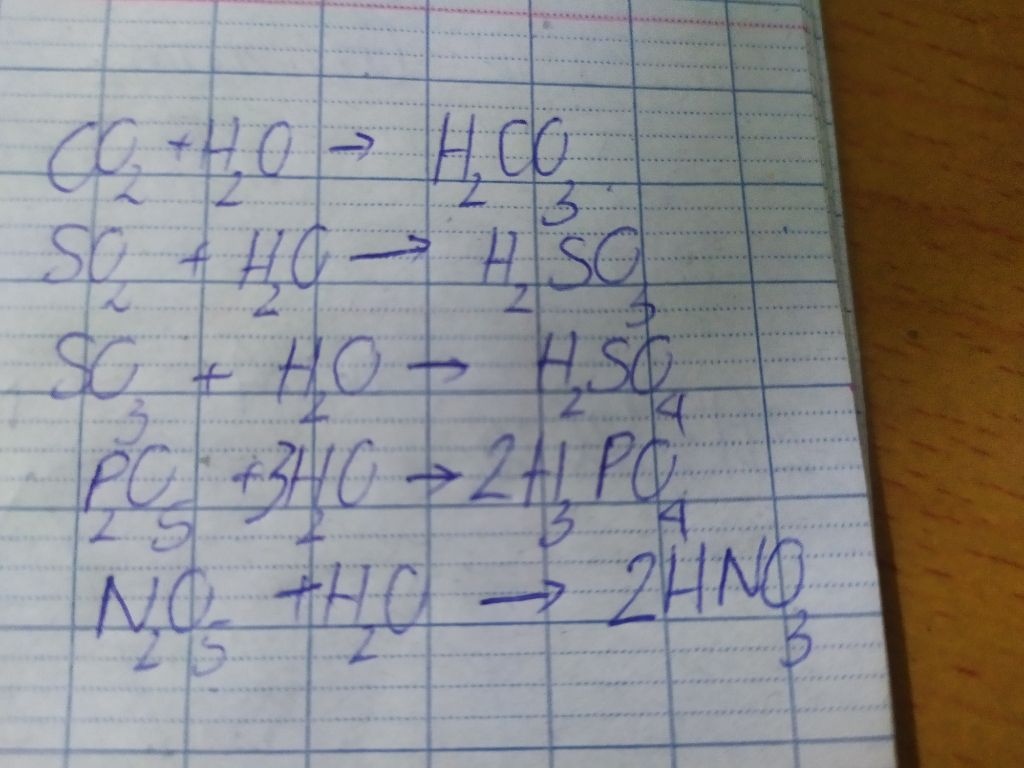 CO₂ + H₂O → H₂CO₃
SO₂ + H₂O → H₂SO₃
SO₃ + H₂O → H₂SO₄
P₂O₅ + 3H₂O → 2H₃PO₄
N₂O₅ + H₂O → 2HNO₃